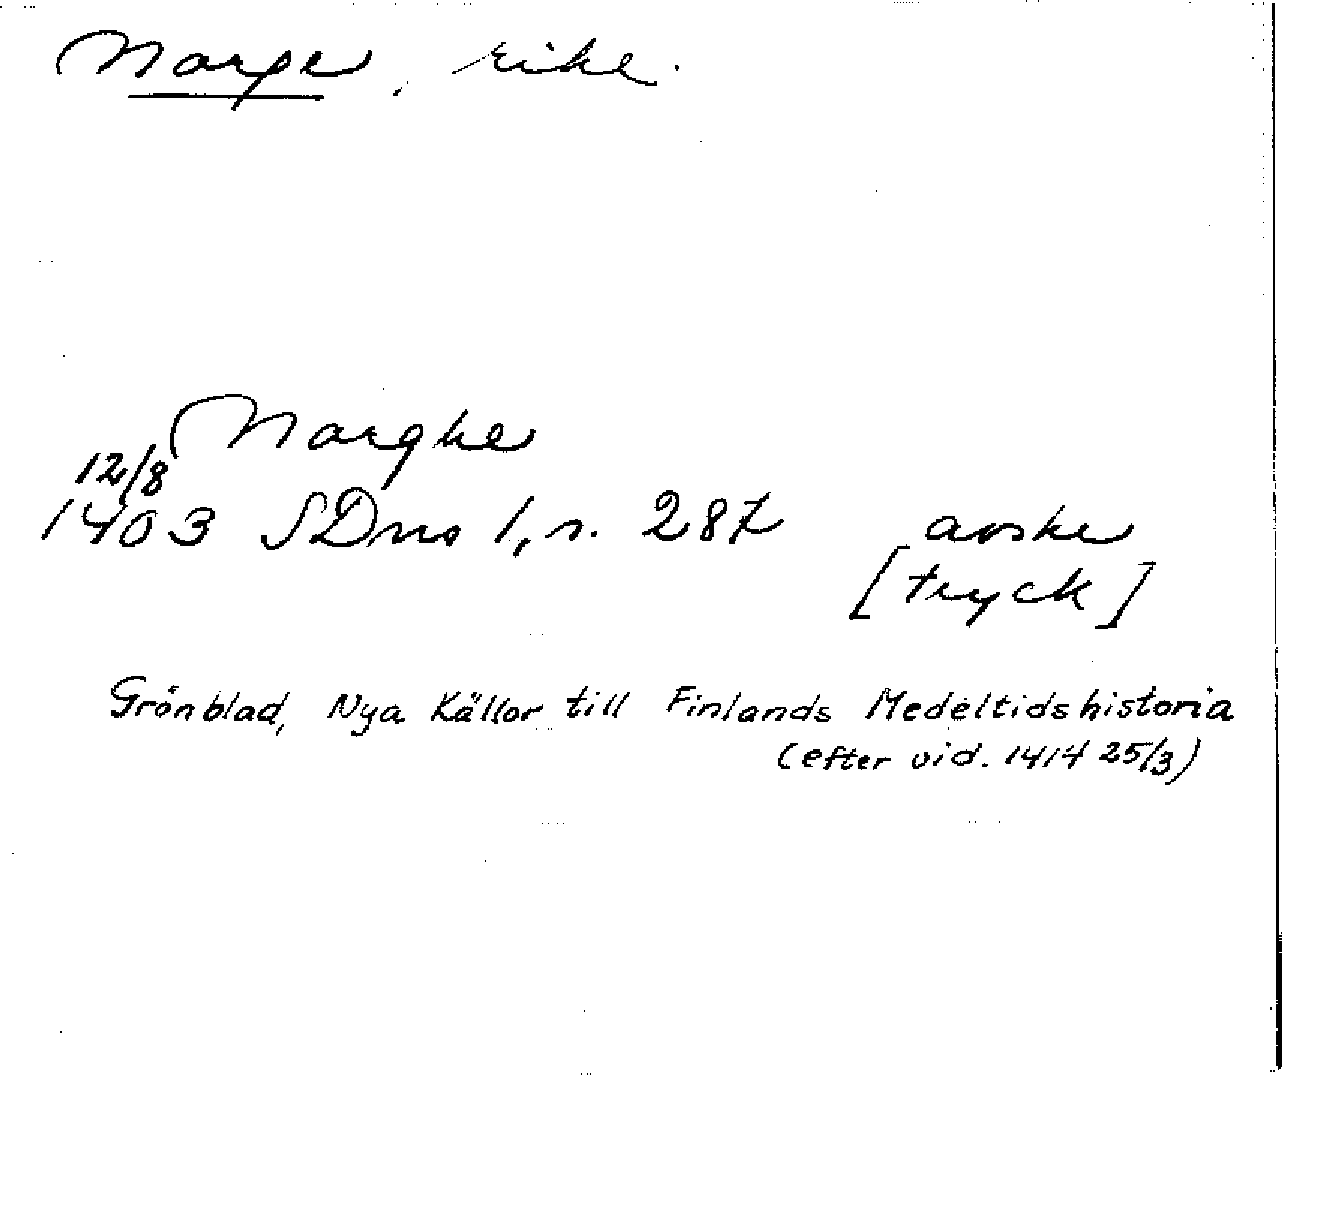 Norge, rike.
Norghe
12/8
1403 SDns 1, s. 287 avskr
[tryck]
Grönblad, Nya Källor till Finlands Medeltidshistoria
(efter vid. 1414 25/3)